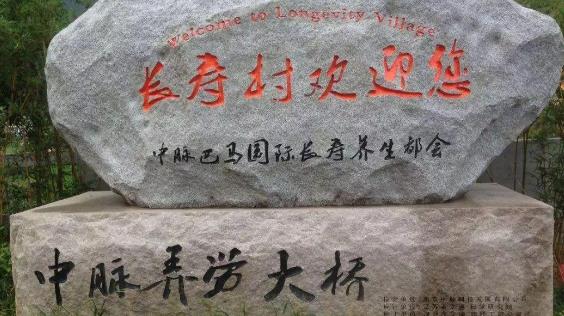 Welcome to Longevity Village
长寿村欢迎您
中脉巴马国际长寿养生都会
中脉弄劳大桥